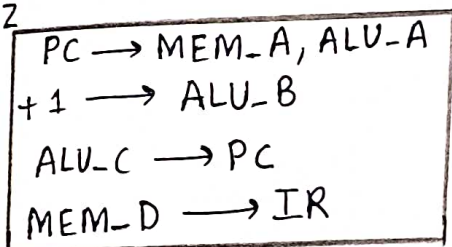 2
PC → MEM_A, ALU_A
+1 → ALU_B
ALU_C → PC
MEM_D → IR